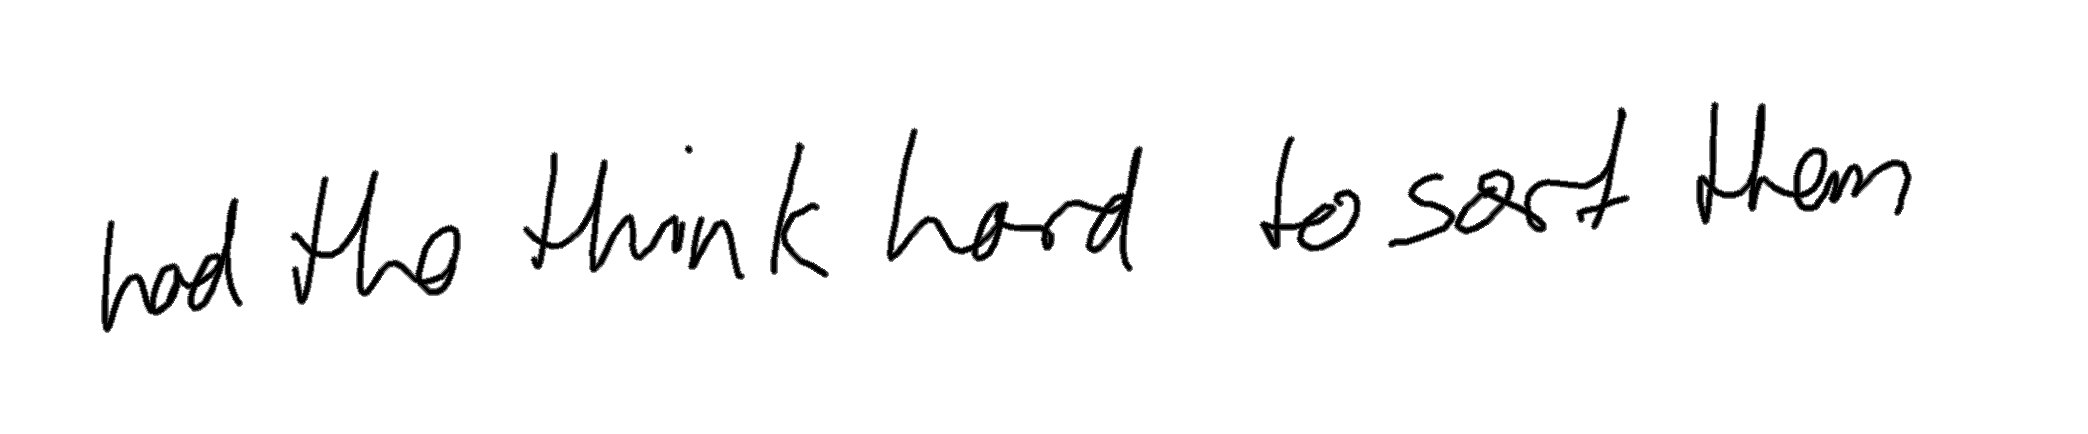 had the think hard to sort them